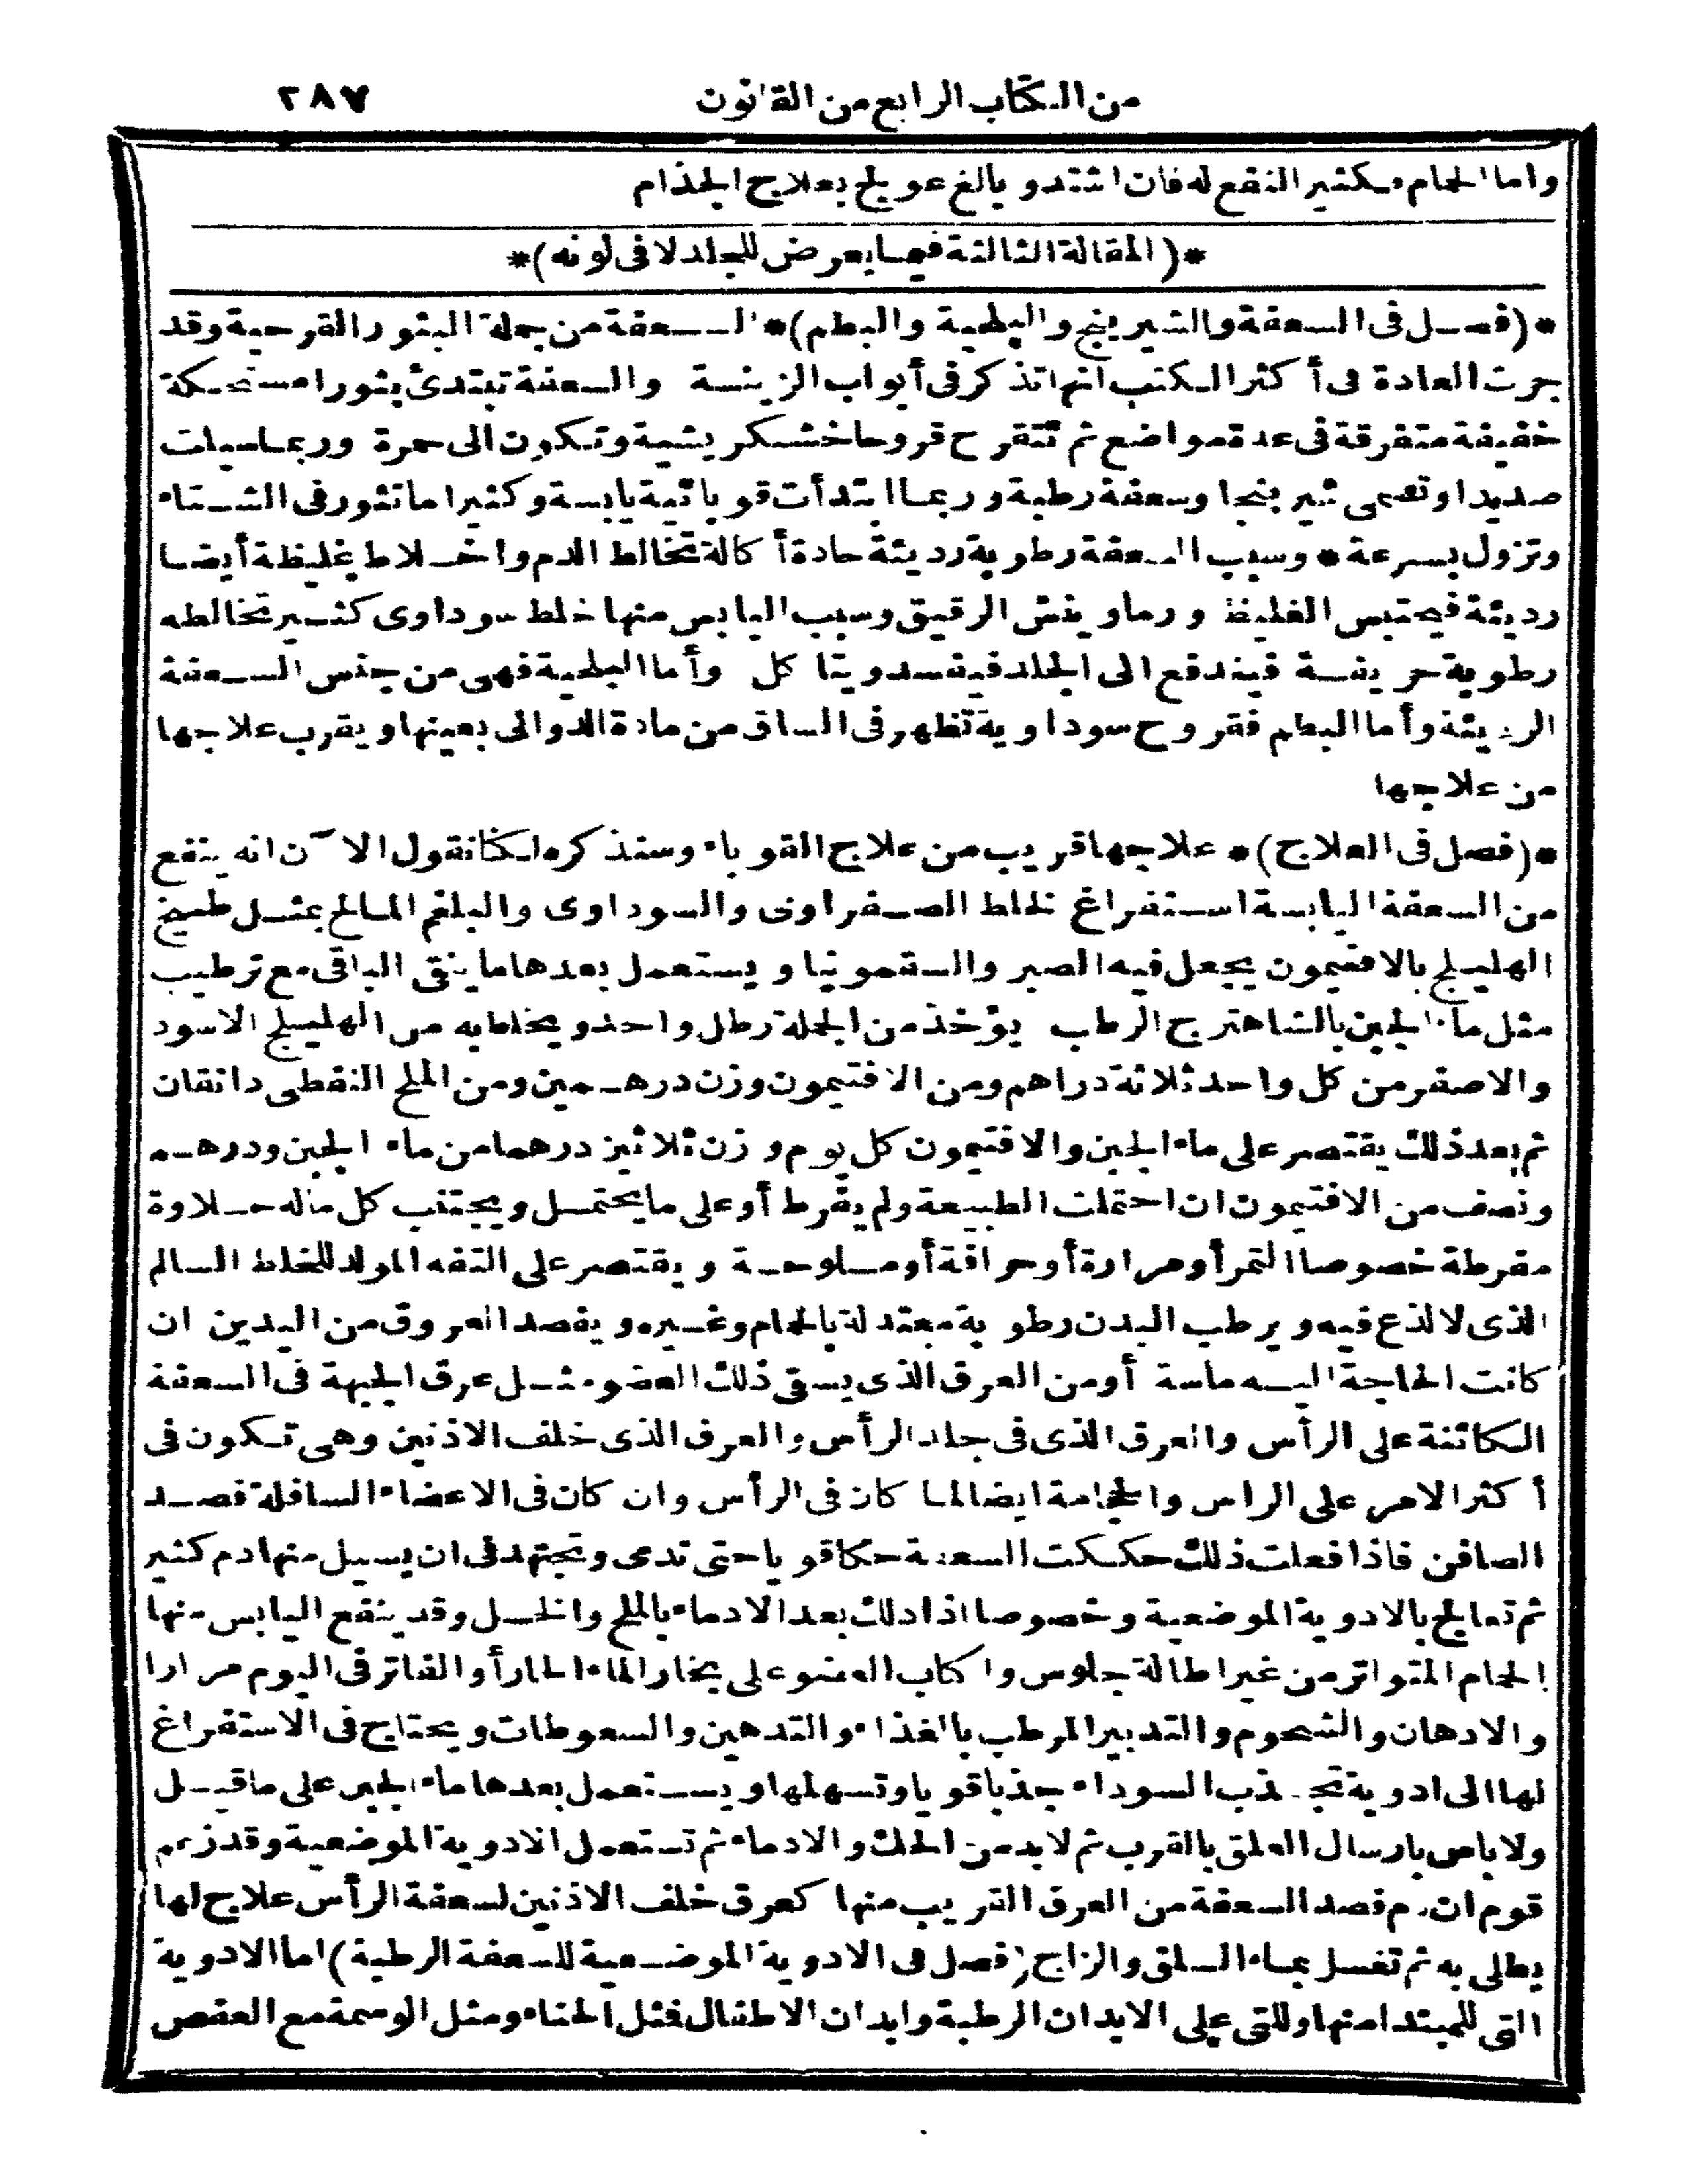 من الكتاب الرابع من القانون ٢٨٧
واما الحمام فكثير النفع له فان اشتد وبالغ عولج بعلاج الجذام
*(المقالة الثالثة فيما يعرض للجلد لا فى لونه)*
*(فصل فى السعفة والشيرينج والبلحية والبطم)* السعفة من جملة البثور القرحية وقد
جرت العادة فى أكثر الكتب انها تذكر فى أبواب الزينة والسعفة تبتدئ بثورا مستحكة
خفيفة متفرقة فى عدة مواضع ثم تتقرح قروحا خشكريشية وتكون الى حمرة وربما سيلت
صديدا وتسمى شيرينجا وسعفة رطبة وربما ابتدأت قوبائية يابسة وكثيرا ما تثور فى الشتاء
وتزول بسرعة * وسبب السعفة رطوبة رديئة حادة أكالة تخالط الدم واخلاط غليظة أيضا
رديئة فيحتبس الغليظ ورما وينش الرقيق وسبب اليابس منها خلط سوداوى كثير تخالطه
رطوبة حريفة فيندفع الى الجلد فيفسد ويتأكل وأما البلحية فهى من جنس السعفة
الرديئة وأما البطم فقروح سوداوية تظهر فى الساق من مادة الدوالى بعينها ويقرب علاجها
من علاجها
*(فصل فى العلاج)* علاجها قريب من علاج القوباء وسنذكره لكنا نقول الآن انه ينفع
من السعفة اليابسة استفراغ الخلط الصفراوى والسوداوى والبلغم المالح بمثل طبيخ
الهليلج بالافتيمون يجعل فيه الصبر والسقمونيا ويستعمل بعدها ما ينقى الباقى مع ترطيب
مثل ماء الجبن بالشاهترج الرطب يؤخذ من الجملة رطل واحد ويخلط به من الهليلج الاسود
والاصفر من كل واحد ثلاثة دراهم ومن الافتيمون وزن درهمين ومن الملح النفطى دانقان
ثم بعد ذلك يقتصر على ماء الجبن والافتيمون كل يوم وزن ثلاثين درهما من ماء الجبن ودرهم
ونصف من الافتيمون ان احتملت الطبيعة ولم يفرط أو على ما يحتمل ويجتنب كل ماله حلاوة
مفرطة خصوصا التمر أو مرارة أو حرافة أو ملوحة ويقتصر على التفه المولد للخلط السالم
الذى لا لذع فيه ويرطب البدن رطوبة معتدلة بالحمام وغيره ويفصد العروق من اليدين ان
كانت الحاجة اليه ماسة أو من العرق الذى يسقى ذلك العضو مثل عرق الجبهة فى السعفة
الكائنة على الرأس والعرق الذى فى جلد الرأس والعرق الذى خلف الاذنين وهى تكون فى
أكثر الامر على الراس والحجامة ايضا لما كان فى الرأس وان كان فى الاعضاء السافلة فصد
الصافن فاذا فعلت ذلك حككت السعفة حكا قويا حتى تدمى وتجتهد فى ان يسيل منها دم كثير
ثم تعالج بالادوية الموضعية وخصوصا اذا دلك بعد الادماء بالملح والخل وقد ينفع اليابس منها
الحمام المتواتر من غير اطالة جلوس واكباب العضو على بخار الماء الحار أو الفاتر فى اليوم مرارا
والادهان والشحوم والتدبير المرطب بالغذاء والتدهين والسعوطات ويحتاج فى الاستفراغ
لها الى ادوية تجذب السوداء جذبا قويا وتسهلها ويستعمل بعدها ماء الجبن على ما قيل
ولا باس بارسال العلق بالقرب ثم لا بد من الحك والادماء ثم تستعمل الادوية الموضعية وقد زعم
قوم ان دم فصد السعفة من العرق القريب منها كعرق خلف الاذنين لسعفة الرأس علاج لها
يطلى به ثم تغسل بماء السلق والزاج (فصل فى الادوية الموضعية للسعفة الرطبة) اما الادوية
التى للمبتدا منها وللتى على الابدان الرطبة وابدان الاطفال فمثل الحناء ومثل الوسمة مع العفص